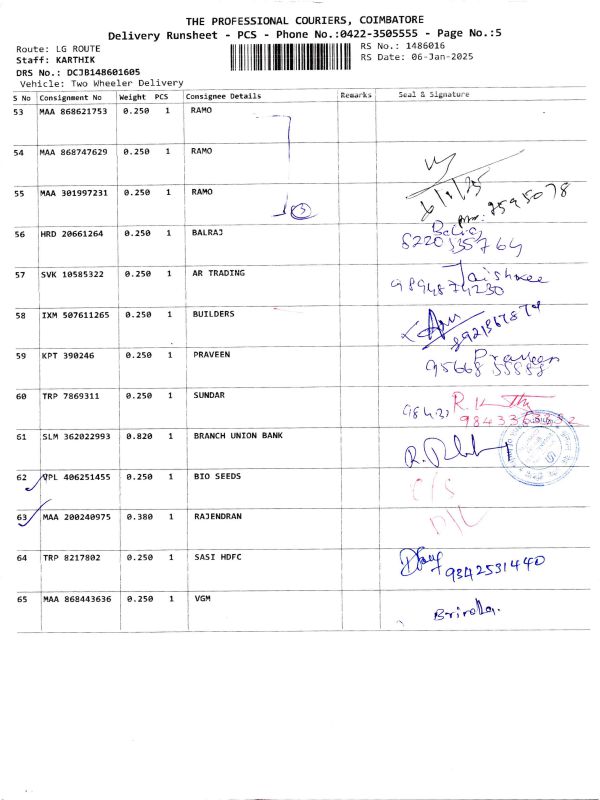 THE PROFESSIONAL COURIERS, COIMBATORE
Delivery Runsheet - PCS - Phone No.:0422-3505555 - Page No.:5
Route: LG ROUTE
RS No.: 1486016
Staff: KARTHIK
RS Date: 06-Jan-2025
DRS No.: DCJB148601605
Vehicle: Two Wheeler Delivery
S No Consignment No Weight PCS Consignee Details Remarks Seal & Signature
53 MAA 868621753 0.250 1 RAMO
54 MAA 868747629 0.250 1 RAMO
55 MAA 301997231 0.250 1 RAMO
3
6/1/25
8595078
56 HRD 20661264 0.250 1 BALRAJ
8220335764
57 SVK 10585322 0.250 1 AR TRADING Jaishree
9894874230
58 IXM 507611265 0.250 1 BUILDERS
8921367874
59 KPT 390246 0.250 1 PRAVEEN Praveen
9566855888
60 TRP 7869311 0.250 1 SUNDAR
9843363332
61 SLM 362022993 0.820 1 BRANCH UNION BANK
62 VPL 406251455 0.250 1 BIO SEEDS
63 MAA 200240975 0.380 1 RAJENDRAN D/L
64 TRP 8217802 0.250 1 SASI HDFC 9342531440
65 MAA 868443636 0.250 1 VGM